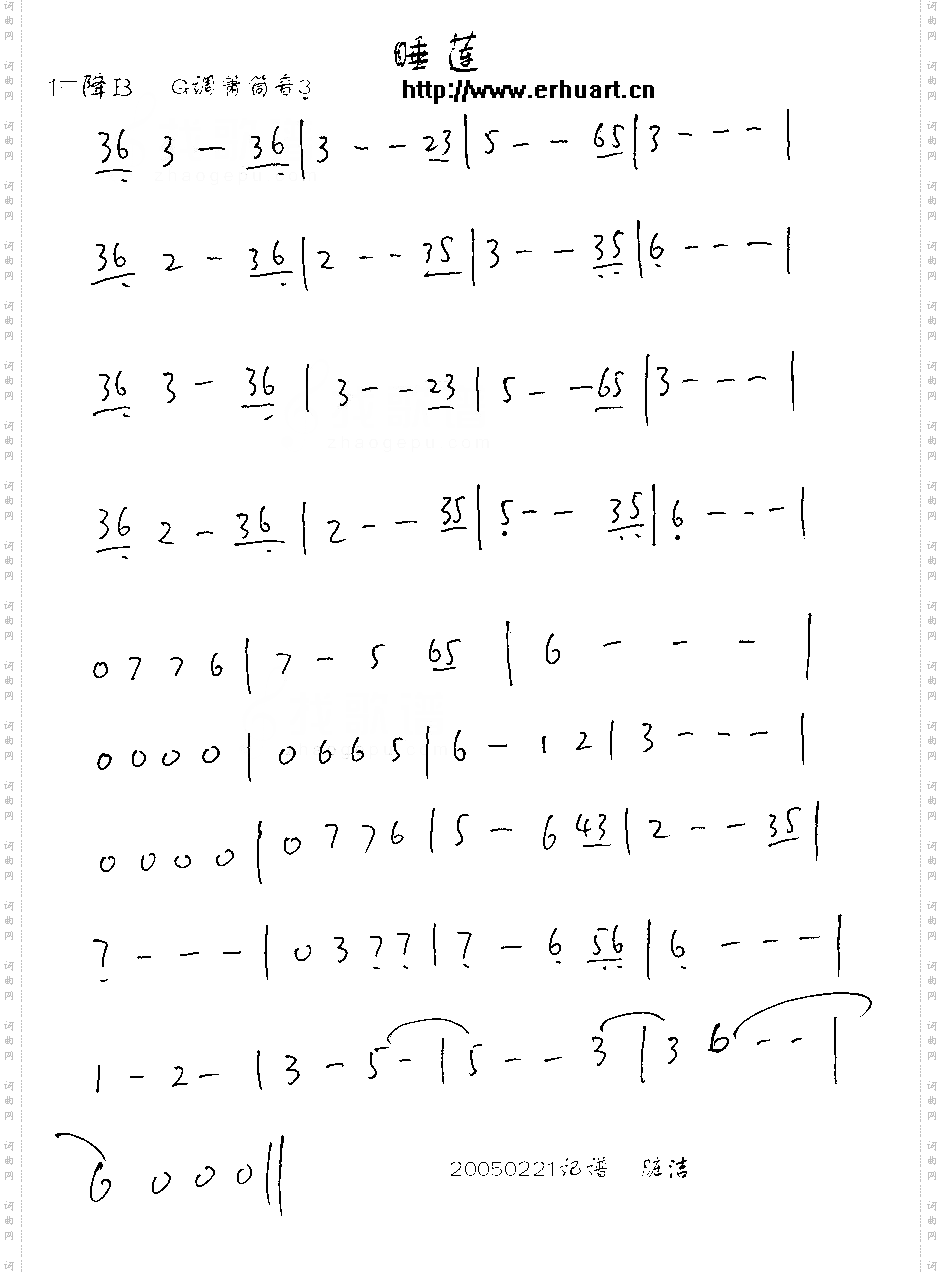 睡莲
1=降B G调箫筒音3
http://www.erhuart.cn
36 3 - 36 | 3 - - 23 | 5 - - 65 | 3 - - - |
36 2 - 36 | 2 - - 35 | 3 - - 35 | 6 - - - |
36 3 - 36 | 3 - - 23 | 5 - - 65 | 3 - - - |
36 2 - 36 | 2 - - 35 | 5 - - 35 | 6 - - - |
0 7 7 6 | 7 - 5 65 | 6 - - - |
0 0 0 0 | 0 6 6 5 | 6 - 1 2 | 3 - - - |
0 0 0 0 | 0 7 7 6 | 5 - 6 43 | 2 - - 35 |
7 - - - | 0 3 7 7 | 7 - 6 56 | 6 - - - |
1 - 2 - | 3 - 5 - | 5 - - 3 | 3 6 - - |
6 0 0 0 ||
20050221记谱